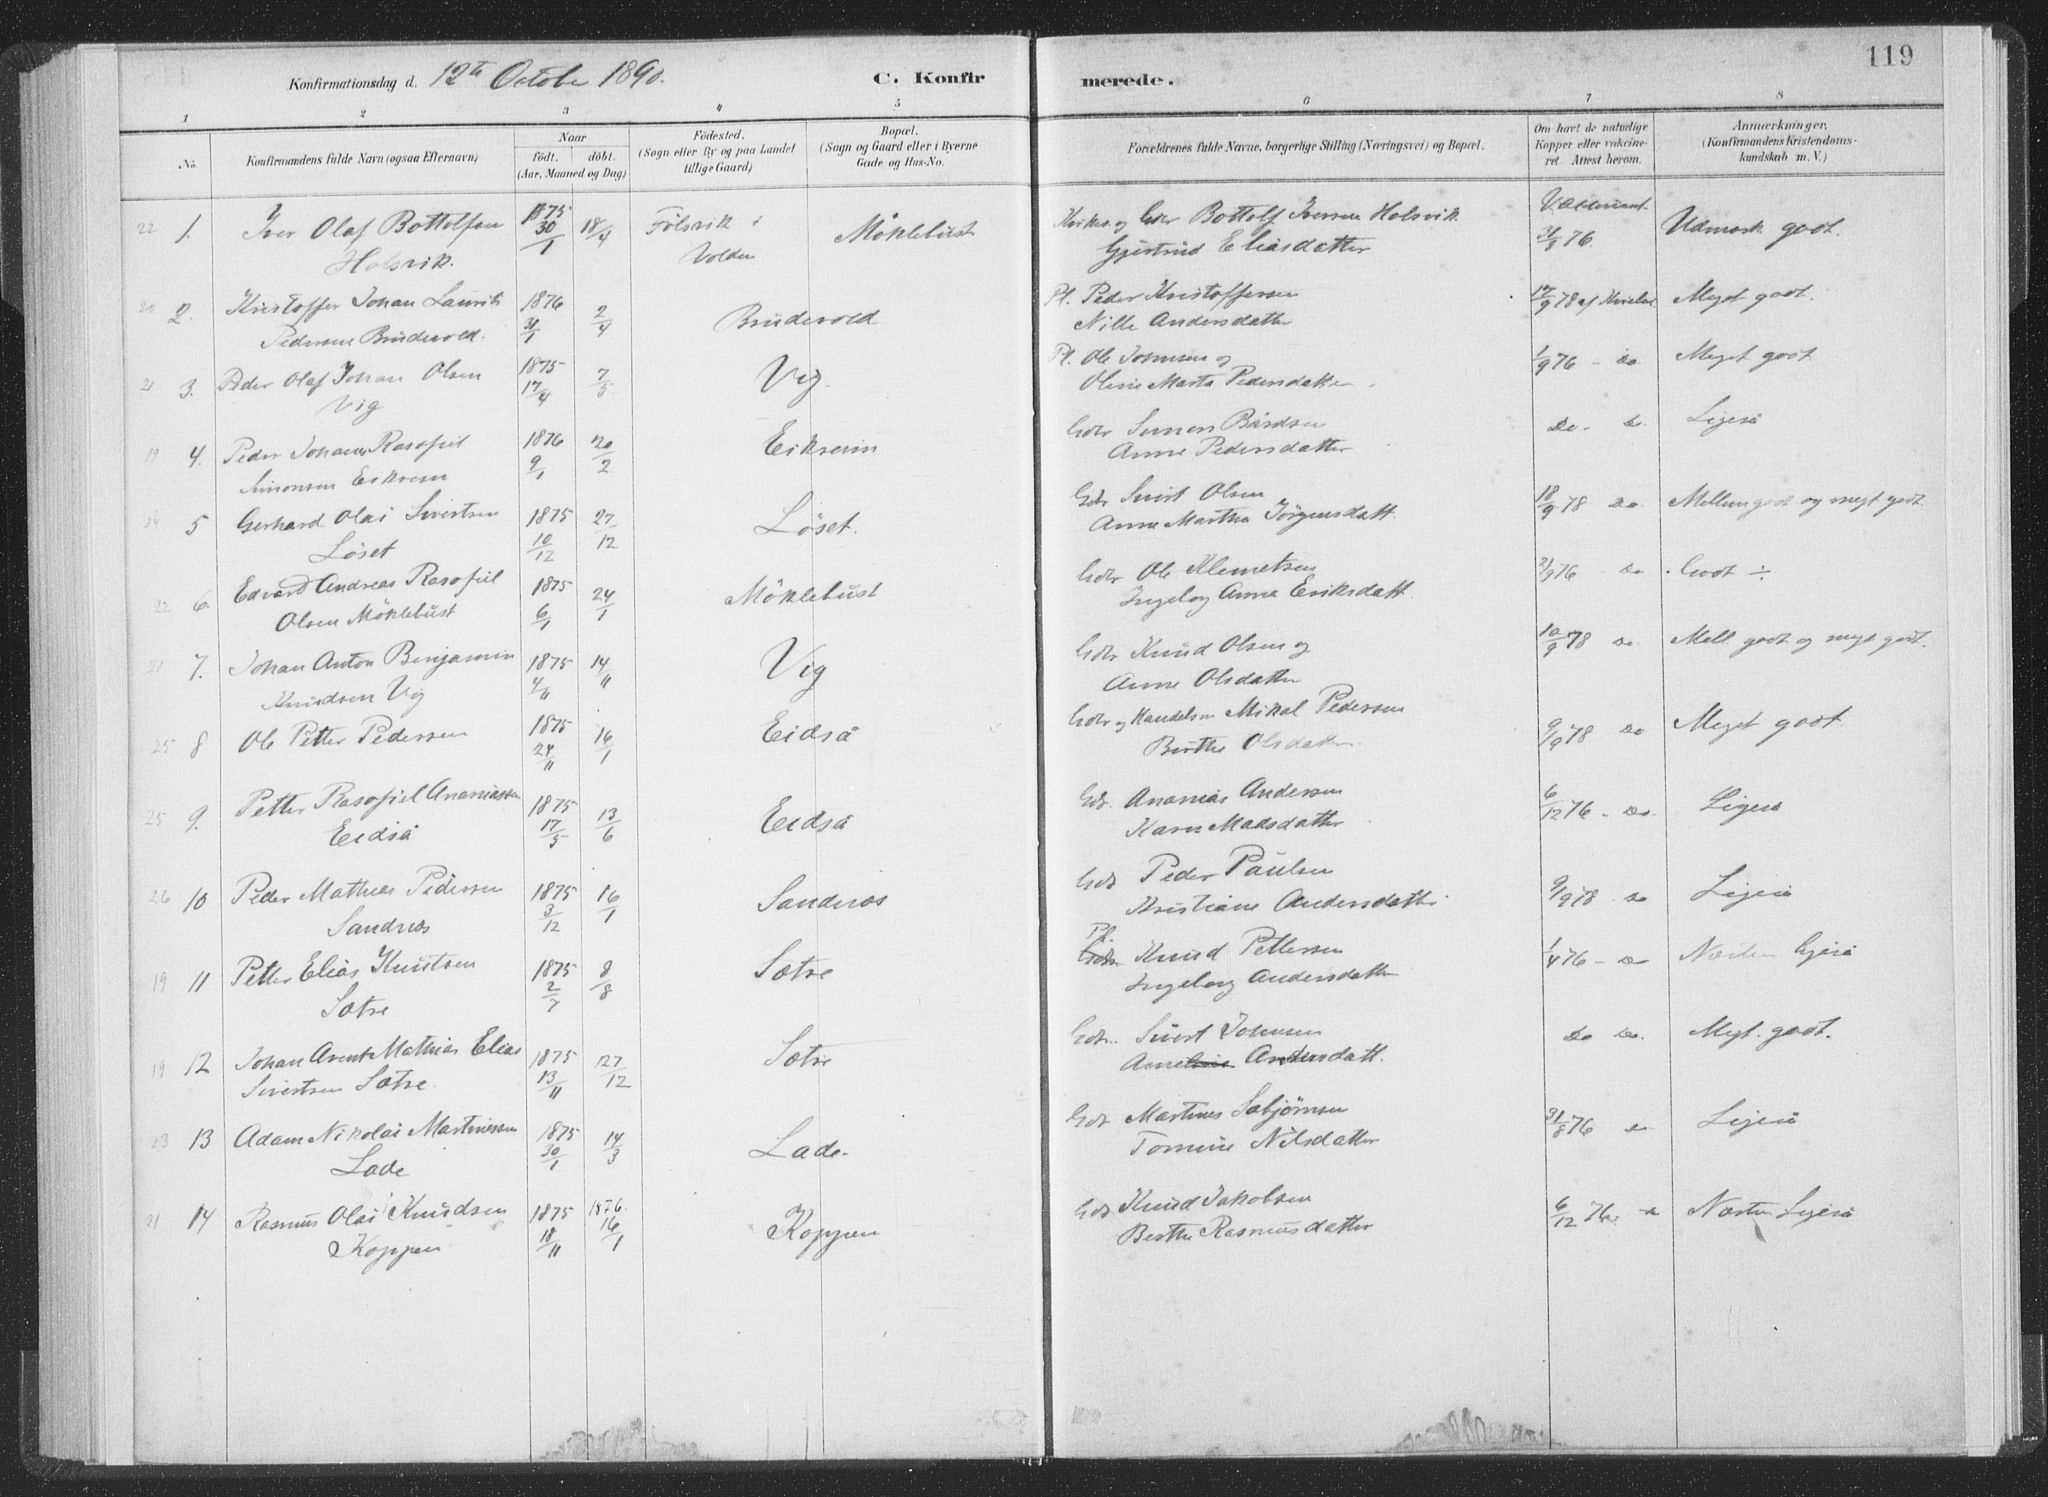 119
Konfirmationsdag d. 12te October 1890.
C. Konfirmerede.
1 2 3 4 5 6 7 8
No.
Konfirmandens fulde Navn (ogsaa Efternavn)
Naar
født. døbt.
(Aar, Maaned og Dag)
Födested.
(Sogn eller By og paa Landet
tillige Gaard)
Bopæl.
(Sogn og Gaard eller i Byerne
Gade og Hus-No.
Forældrenes fulde Navne, borgerlige Stilling (Næringsvei) og Bopæl.
Om havt de naturlige
Kopper eller vakcine-
ret. Attest herom.
Anmærkninger.
(Konfirmandens Kristendoms-
kundskab m. V.)
22 1. Iver Olaf Bottolfsen 1875 30/1 18/4 Fölsvik i Möklebust Gdr Bottolf Iversen Holsvik 31/8 76. Udmærk. godt.
Holsvik. Volden Gjertrud Eliasdatter
20 2. Kristoffer Johan Laurits 1876 31/1 2/4 Brudevold Pl. Peder Kristoffersen 17/9 78 Meget godt.
Pedersen Brudevold. Nille Andersdatter
21 3. Peder Olaf Johan Olsen 1875 17/4 7/5 Vig. Pl. Ole Johnsen og 1/9 76 - do Meget godt
Vig Oline Marta Pedersdatter
19 4. Peder Johanes Rasofiel 1876 9/1 20/2 Eikrem Gdr Simon Bårdsen do. do. Ligeså
Simonsen Eikrem Anne Pedersdatter
24 5 Gerhard Olai Sivertsen 1875 10/12 27/12 Löset. Gdr Sivert Olsen 18/9 78 do. Mellemgodt og meget godt.
Löset Anne Martha Jörgensdatt.
22 6. Edvard Andreas Rasofiel 1875 6/1 24/1 Möklebust Gdr Ole Klemetsen 2/9 76 - do Godt ÷
Olsen Möklebust Ingeborg Anna Eriksdatt.
21 7. Johan Anton Benjamin 1875 4/11 14/11 Vig Gdr Knud Olsen og 10/9 78 do. Mell godt og meget godt.
Knudsen Vig Anne Olsdatter
25 8 Ole Petter Pedersen 1875 24/11 16/1 Eidså Gdr og Handelsm Mikal Pedersen 9/9 78 do Meget godt.
Berthe Olsdatter
25 9. Petter Rasofiel Ananiassen 1875 17/5 13/6 Eidså Gdr. Ananias Andersen 6/12 76 - do. Ligeså
Eidså Karen Madsdatter
26 10 Peder Mathias Pedersen 1875 3/12 16/1 Sandnæs Gdr Peder Paulsen 9/9 78 do Ligeså
Sandnæs Kristiane Andersdatter
19 11 Petter Elias Knutsen 1875 2/7 8/8 Sætre Pl. Gdr. Knud Pettersen 1/4 76 - do Næsten ligeså
Sætre Ingeborg Andersdatter
19 12 Johan Arent Mathias Elias 1875 13/11 27/12 Sætre Gdr. Sivert Johnsen do do. Meget godt.
Sivertsen Sætre. Anneline Andersdatt.
23 13 Adam Nikolai Martinussen 1875 30/1 14/3 Lade. Gdr Martinus Sæbjörnsen 31/8 76 do Ligeså
Lade Tomine Nilsdatter
21 14 Rasmus Olai Knudsen 1875 18/11 1876. 16/1 Koppen Gdr Knud Jakobsen 6/12 76. do Næsten Ligeså
Koppen Berthe Rasmusdatter